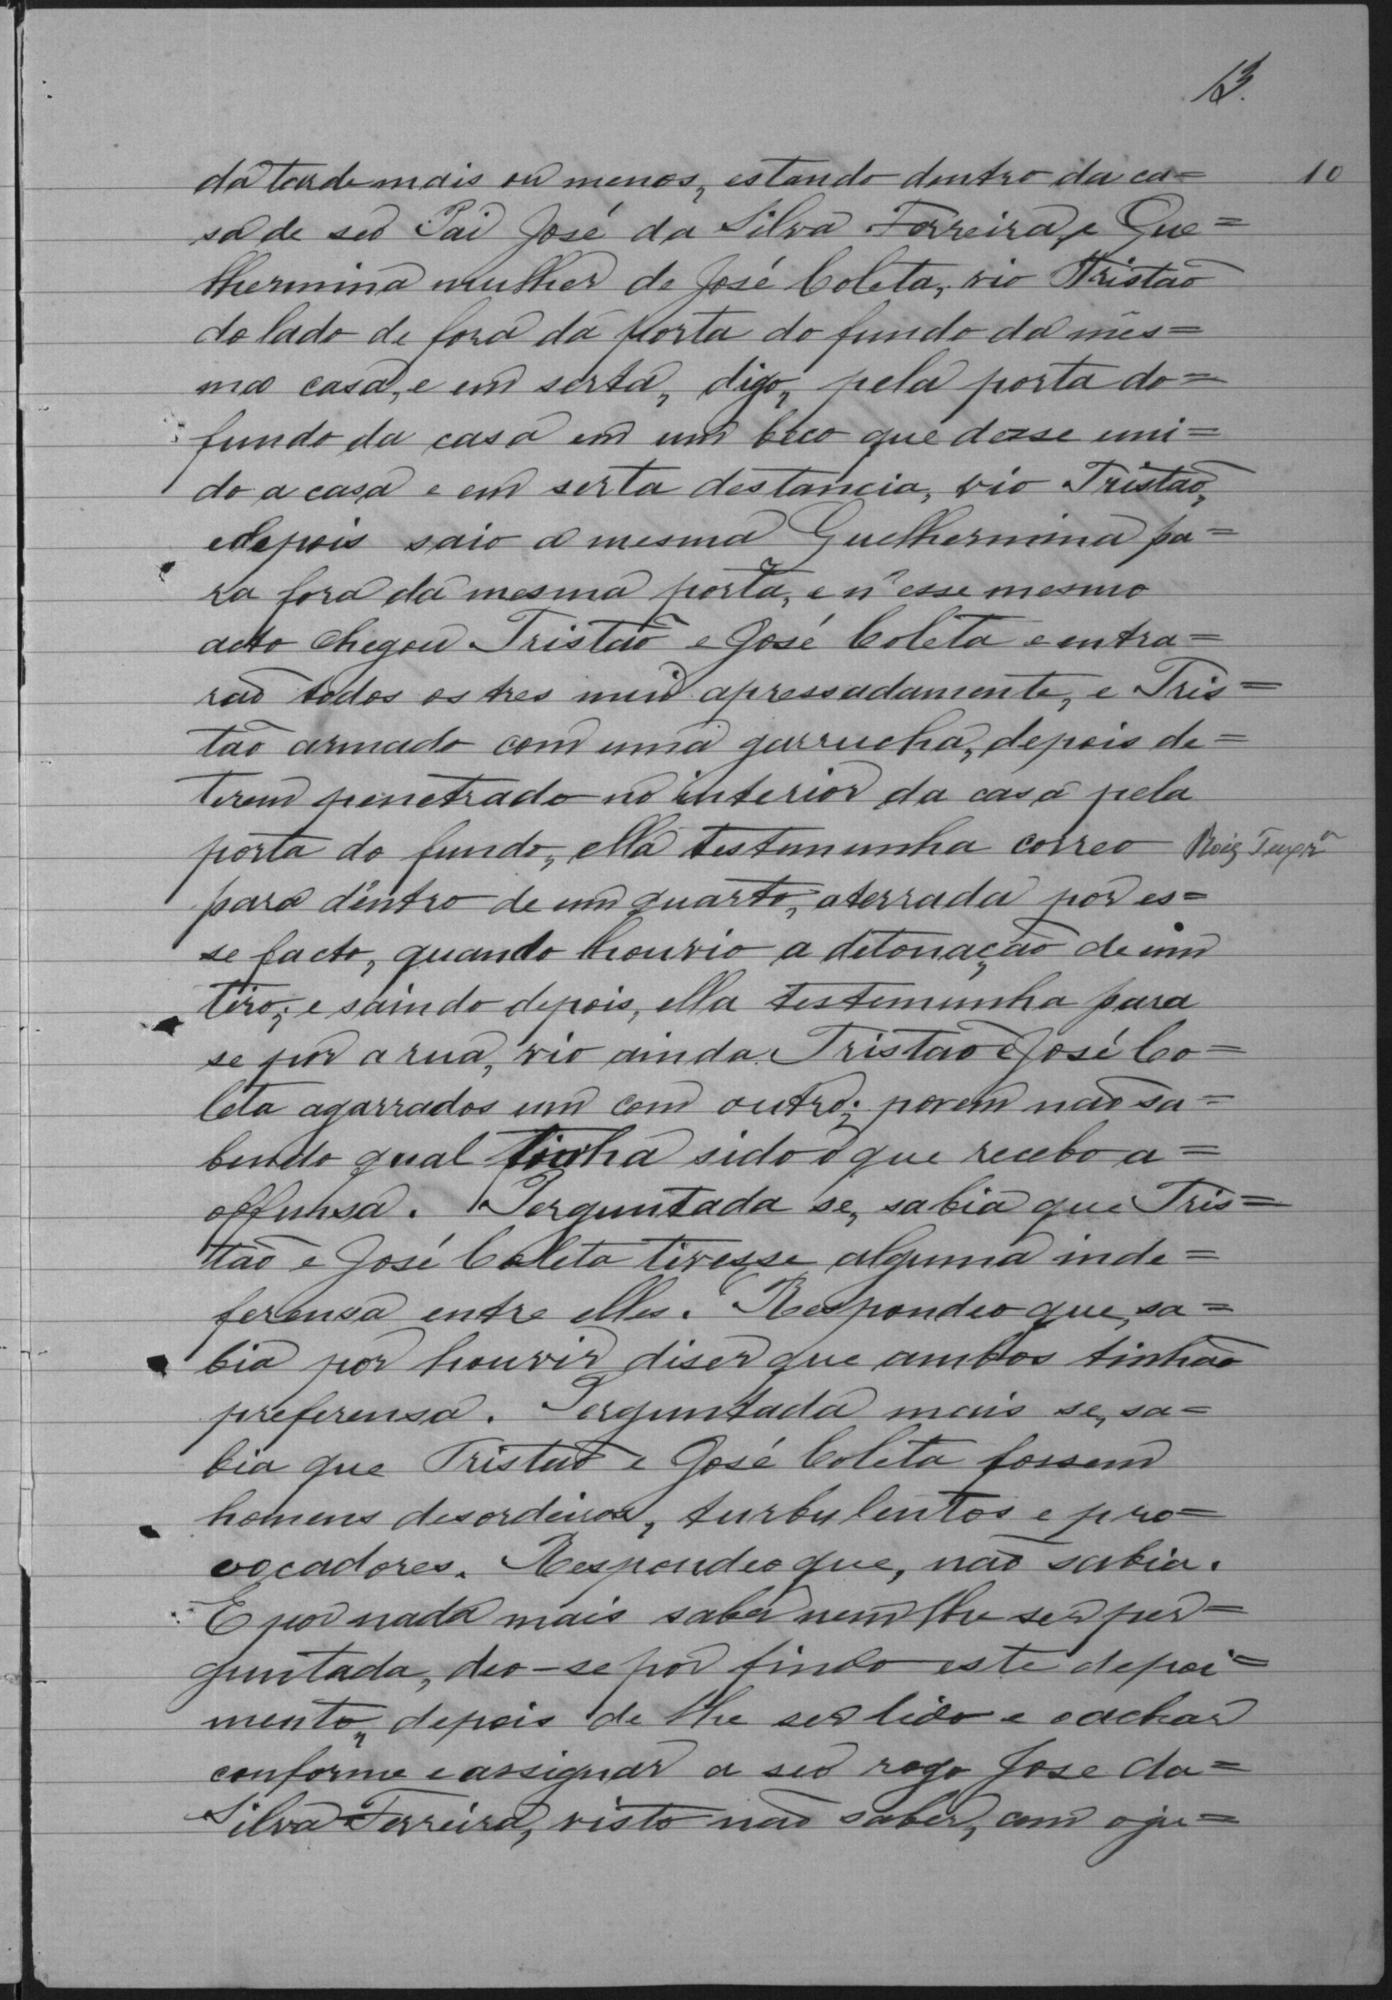 13.
da tarde mais ou menos, estando dentro da ca= 10
sa de seo Pai José da Silva Ferreira, e Gue=
lhermina mulher de José Coleta, vio Tristão
do lado de fora da porta do fundo da mes=
ma casa, e em serta, digo, pela porta do=
fundo da casa em um beco que dasse uni=
do a casa e em serta destancia, vio Tristão,
edepois saio a mesma Guelhermina pa=
ra fora da mesma porta, e n'esse mesmo
acto chegou Tristão e José Coleta e entra=
rão todos os tres mui apressadamente, e Tris=
tão armado com uma garrucha, depois de=
terem penetrado no interior da casa pela
porta do fundo, ella testemunha correo
para dentro de um quarto, aterrada por es=
se facto, quando houvio a detonação de um
tiro; e saindo depois, ella testemunha para
se por a rua, vio ainda Tristão e José Co=
leta agarrados um com outro; porem não sa=
bendo qual tinha sido o que recebo a=
offensa. Perguntada se, sabia que Tris=
tão e José Coleta tivesse alguma inde=
ferensa entre elles. Respondeo que, sa=
bia por houvir diser que ambos tinhão
preferensa. Perguntada mais se, sa=
bia que Tristão e José Coleta fossem
homens desordeiros, turbulentos e pro=
vocadores. Respondeo que, não sabia.
E por nada mais saber nem lhe ser per=
guntada, deo-se por findo este depoi=
mento, depois de lhe ser lido e o achar
conforme e assignar a seo rogo Jose da=
Silva Ferreira, visto não saber, com o ju=